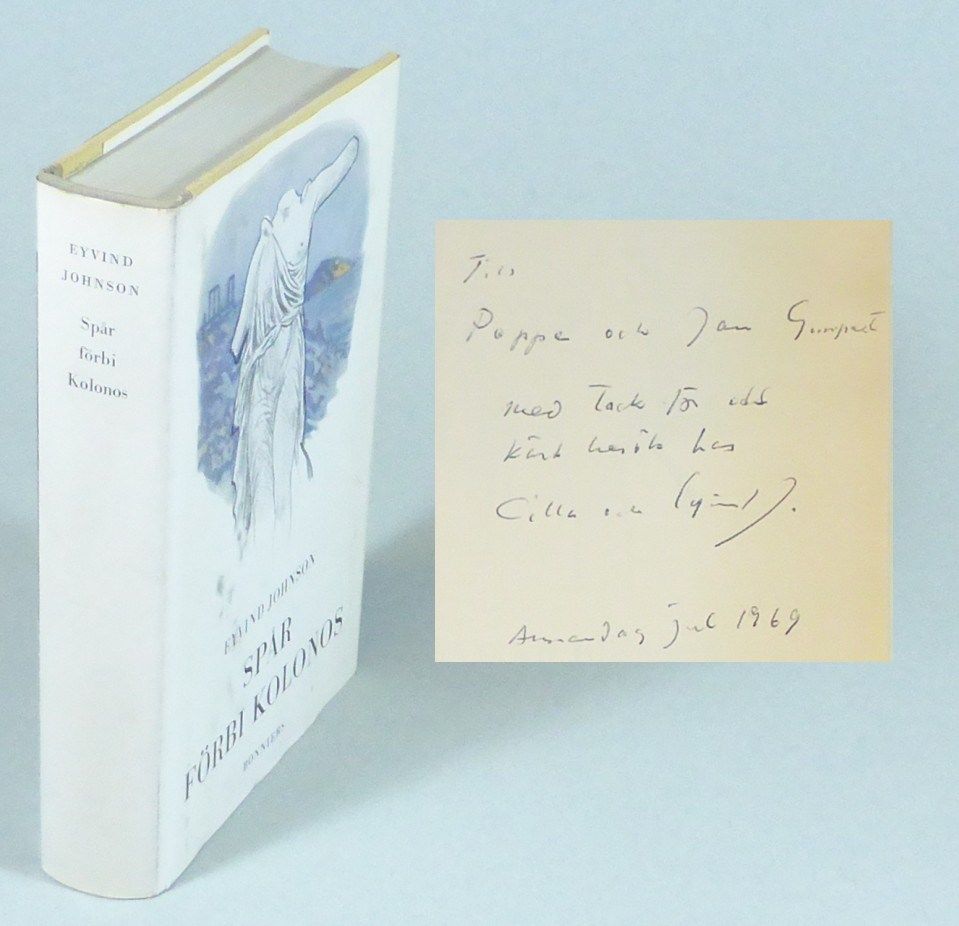 EYVIND
JOHNSON
Spår
förbi
Kolonos
EYVIND JOHNSON
SPÅR
FÖRBI KOLONOS
BONNIERS
Till
Poppe och Jan
med tack för
kärt besök hos
Cilla och
Annandag jul 1969